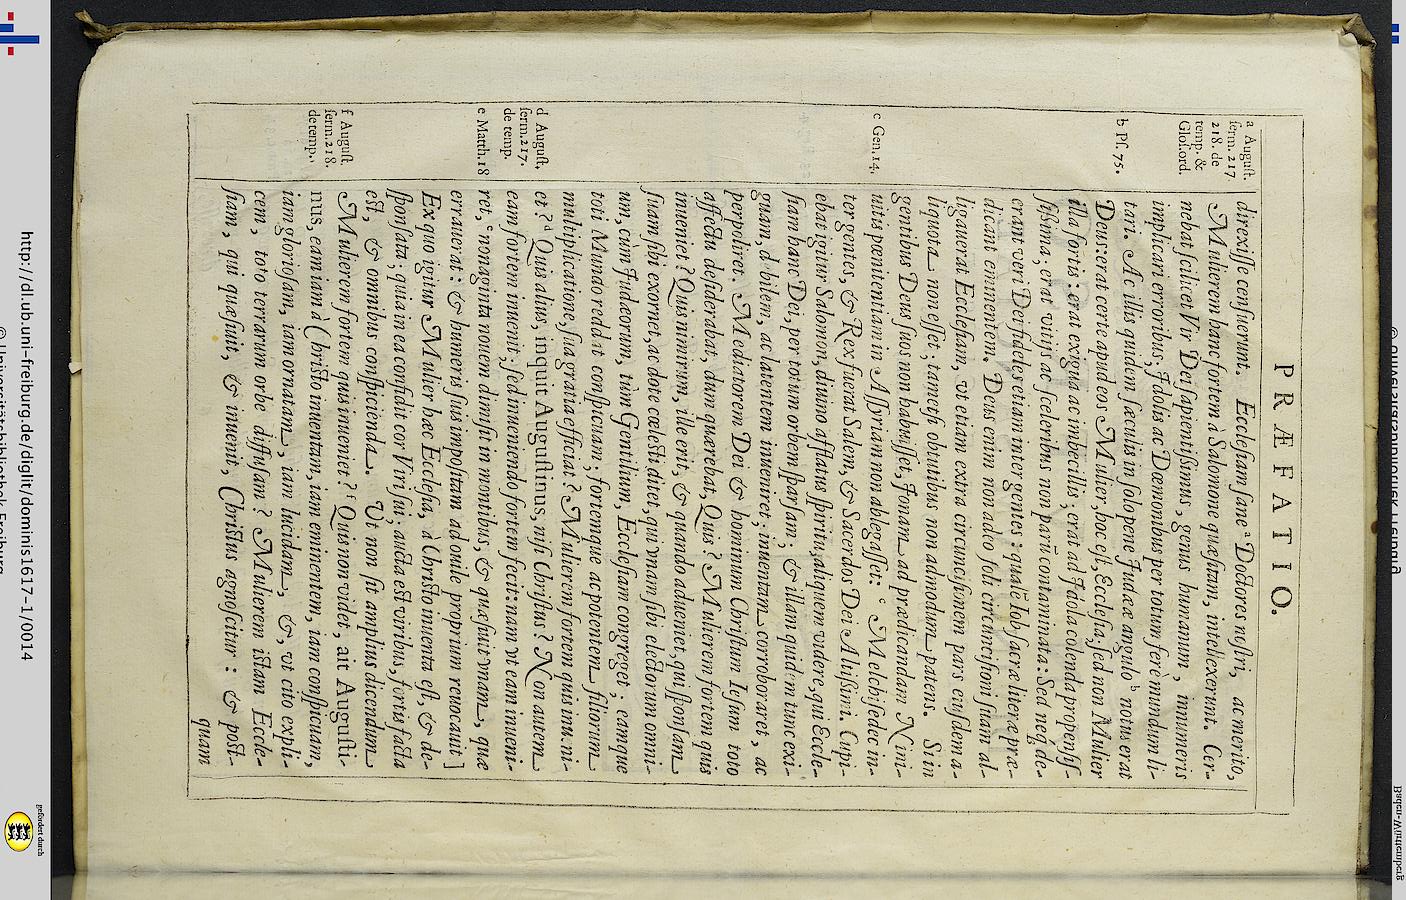 PRÆFATIO.
a August.
serm. 217
218. de
temp. &
Glos. ord.
b Ps. 75.
c Gen. 14.
d August.
serm. 217.
de temp.
e Matth. 18
f August.
serm. 218.
de temp.
direxisse censuerunt, Ecclesiam sane a Doctores nostri, ac merito,
Mulierem hanc fortem à Salomone quæsitam, intellexerunt. Cer-
nebat scilicet Vir Dei sapientissimus, genus humanum, innumeris
implicari erroribus, Idolis ac Dæmonibus per totum ferè mundum li-
tari. Ac illis quidem sæculis in solo pene Iudææ angulo b notus erat
Deus: erat certe apud eos Mulier, hoc est, Ecclesia; sed non Mulier
illa fortis: erat exigua ac imbecillis; erat ad Idola colenda propensis-
sima; erat vitijs ac sceleribus non parũ contaminata: Sed neq; de-
erant veri Dei fideles etiam inter gentes: qualẽ Iob sacræ literæ præ-
dicant eminentem. Deus enim non adeo soli circuncisioni suam al-
ligauerat Ecclesiam, vt etiam extra circuncisionem pars eiusdem a-
liquota non esset; tametsi obtutibus non admodum patens. Si in
gentibus Deus suos non habuisset, Ionam ad prædicandam Nini-
uitis pœnitentiam in Assyriam non ablegasset: c Melchisedec in-
ter gentes, & Rex fuerat Salem, & Sacerdos Dei Altissimi. Cupi-
ebat igitur Salomon, diuino afflatus spiritu, aliquem videre, qui Eccle-
siam hanc Dei, per totum orbem sparsam; & illam quidem tunc exi-
guam, debilem, ac latentem inueniret; inuentam corroboraret, ac
perpoliret. Mediatorem Dei & hominum Christum Iesum toto
affectu desiderabat, dum quærebat, Quis? Mulierem fortem quis
inueniet? Quis nimirum, ille erit, & quando adueniet, qui sponsam
suam sibi exornet, ac dote cœlesti ditet, qui vnam sibi electorum omni-
um, cùm Iudæorum, tùm Gentilium, Ecclesiam congreget; eamque
toti Mundo reddat conspicuam; fortemque ac potentem filiorum
multiplicatione, sua gratia efficiat? Mulierem fortem quis inueni-
et? d Quis alius, inquit Augustinus, nisi Christus? Non autem
eam fortem inuenit; sed inueniendo fortem fecit: nam vt eam inueni-
ret, e nonaginta nouem dimisit in montibus, & quæsiuit vnam, quæ
errauerat: & humeris suis impositam ad ouile proprium reuocauit]
Ex quo igitur Mulier hæc Ecclesia, à Christo inuenta est, & de-
sponsata; quia in ea confidit cor Viri sui; aucta est viribus, fortis facta
est, & omnibus conspicienda. Ut non sit amplius dicendum
Mulierem fortem quis inueniet? f Quis non videt, ait Augusti-
nus, eam iam à Christo inuentam, iam eminentem, iam conspicuam,
iam gloriosam, iam ornatam, iam lucidam, &, vt cito expli-
cem, toto terrarum orbe diffusam? Mulierem istam Eccle-
siam, qui quæsiuit, & inuenit, Christus agnoscitur: & post-
quam
http://dl.ub.uni-freiburg.de/diglit/dominis1617-1/0014
© Universitätsbibliothek Freiburg
gefördert durch